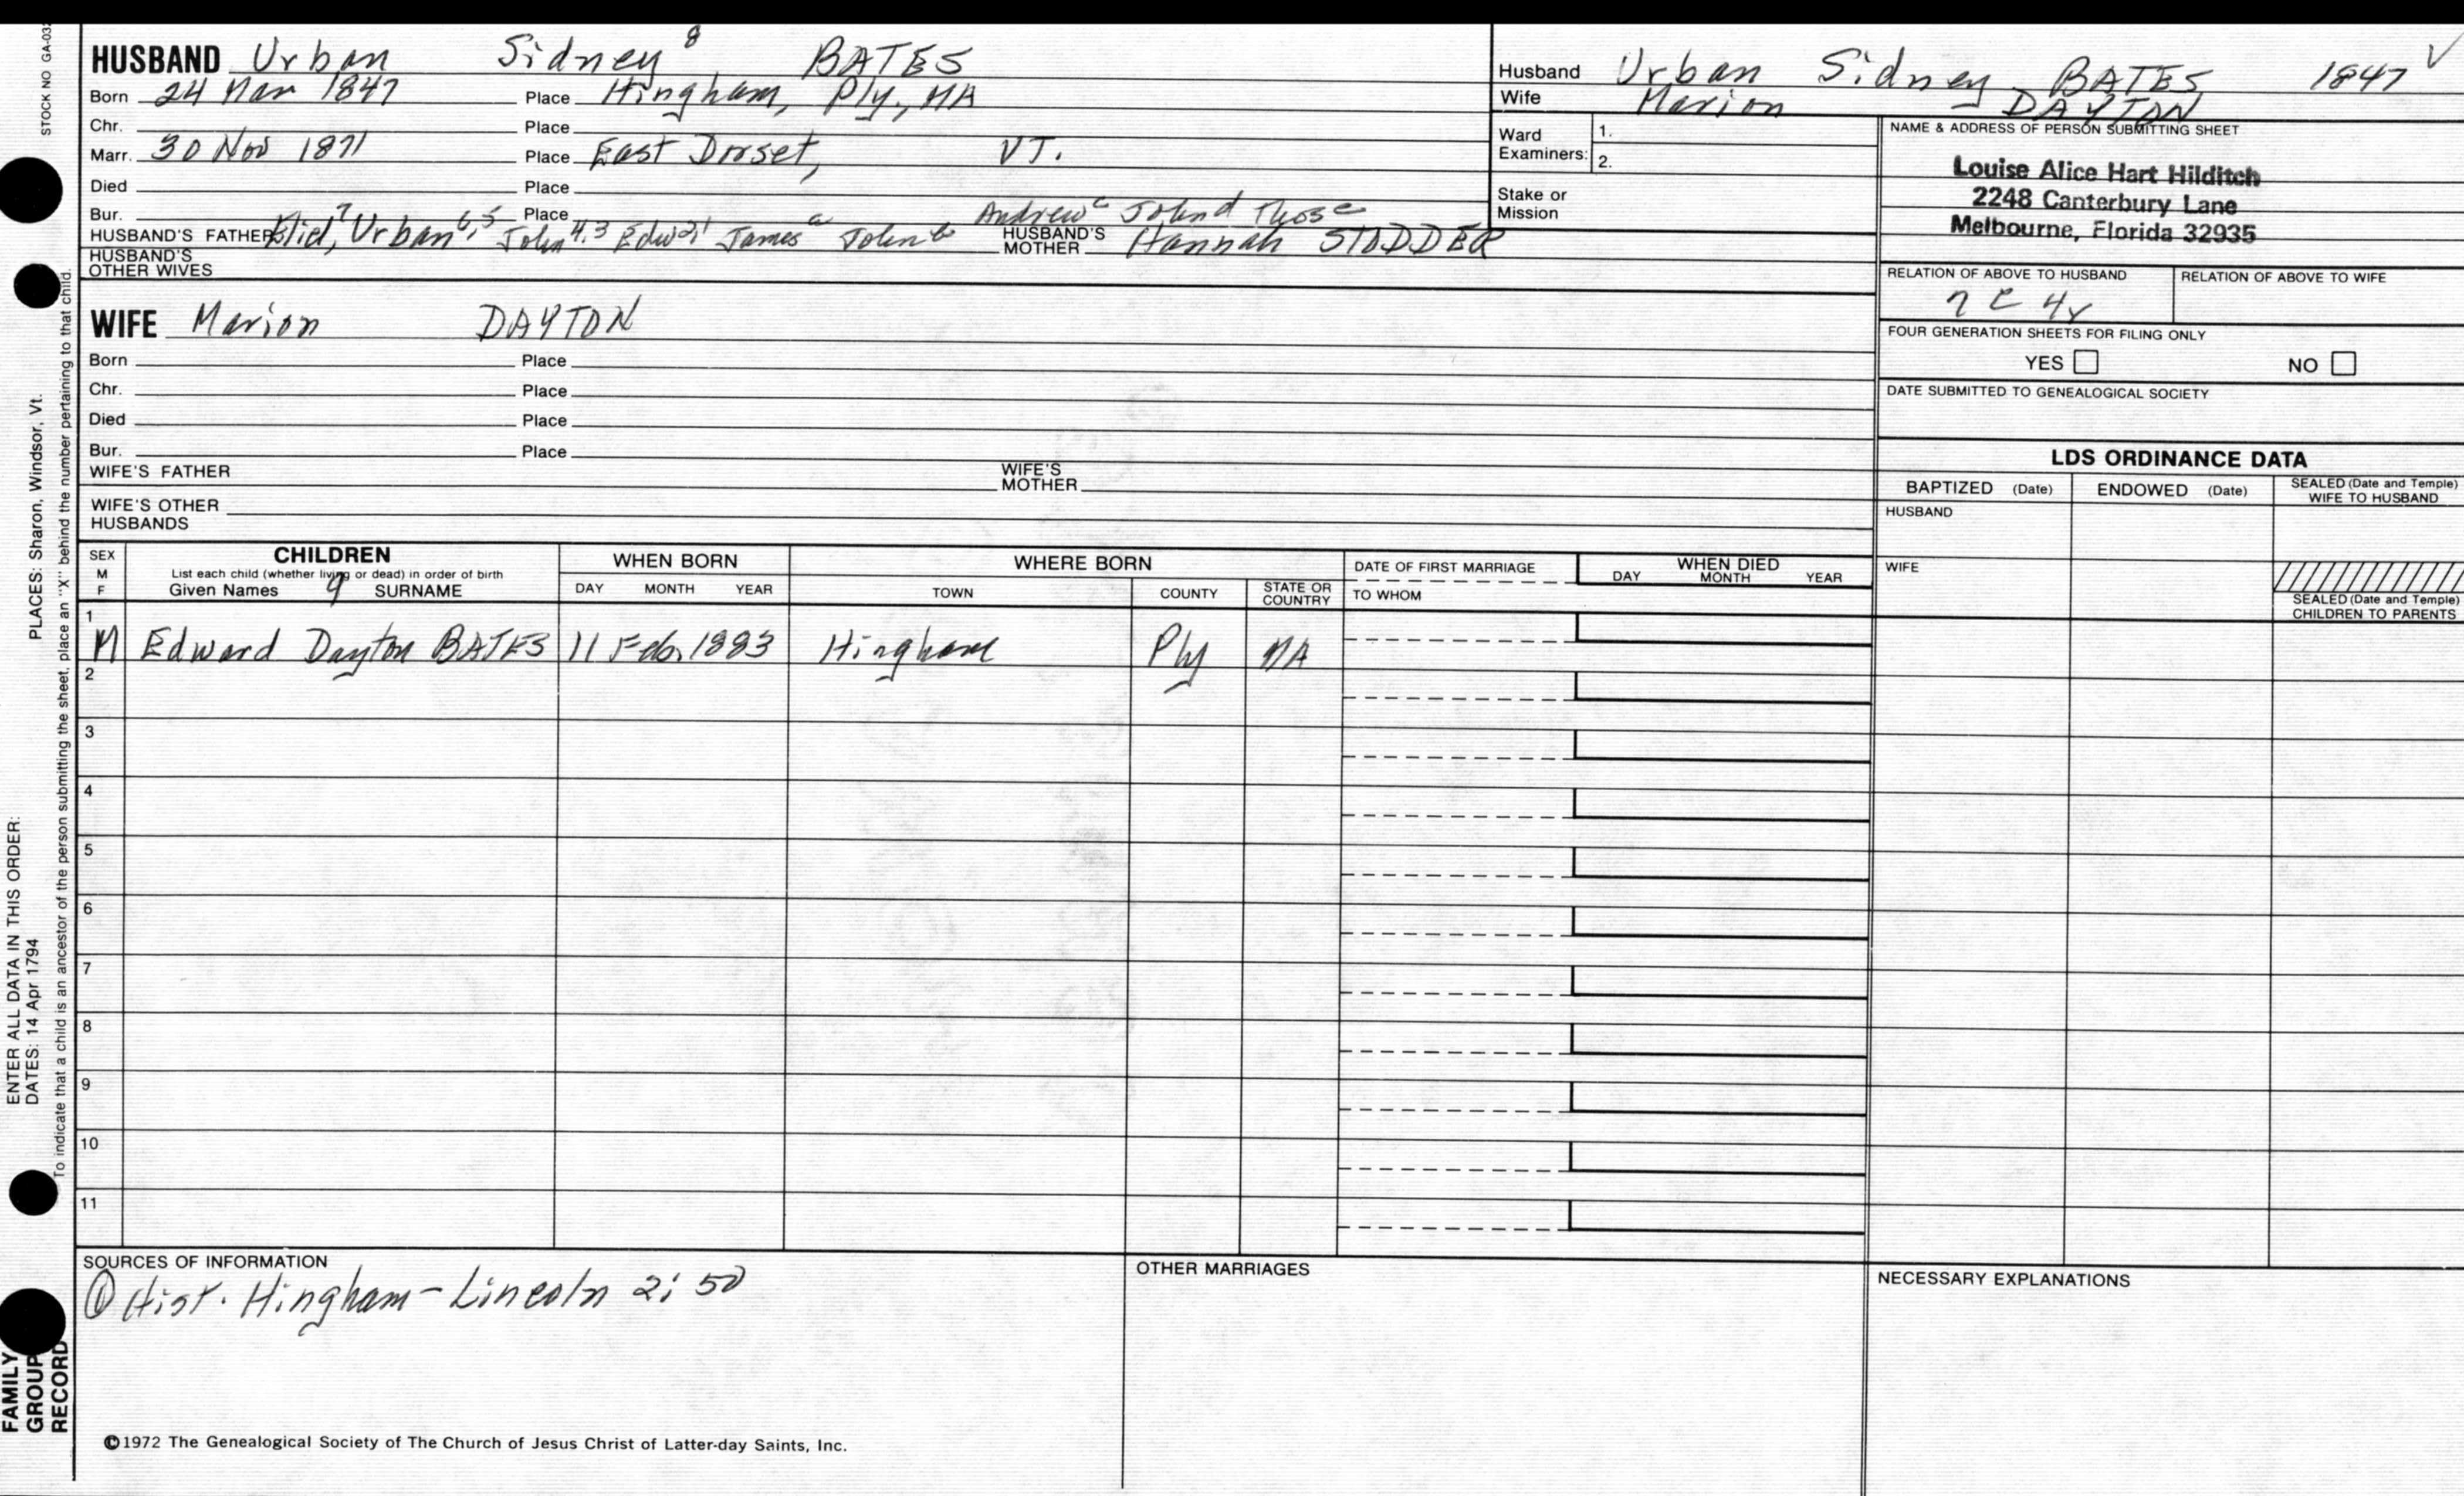 HUSBAND Urban Sidney 8 BATES
Born 24 Mar 1847 Place Hingham, Ply., MA
Chr. Place
Marr. 30 Nov 1871 Place East Dorset, VT.
Died Place
Bur. Place Andrew c John d Thos e
HUSBAND'S FATHER 7 Urban 6,5 John 4,3 Edw 2,1 James a John b HUSBAND'S MOTHER Hannah STODDER
HUSBAND'S OTHER WIVES
Husband Urban Sidney BATES 1847 V
Wife Marion DAYTON
Ward Examiners: 1.
2.
Stake or Mission
NAME & ADDRESS OF PERSON SUBMITTING SHEET
Louise Alice Hart Hilditch
2248 Canterbury Lane
Melbourne, Florida 32935
RELATION OF ABOVE TO HUSBAND RELATION OF ABOVE TO WIFE
7 C 4r
FOUR GENERATION SHEETS FOR FILING ONLY
YES NO
DATE SUBMITTED TO GENEALOGICAL SOCIETY
WIFE Marion DAYTON
Born Place
Chr. Place
Died Place
Bur. Place
WIFE'S FATHER WIFE'S MOTHER
WIFE'S OTHER HUSBANDS
LDS ORDINANCE DATA
BAPTIZED (Date) ENDOWED (Date) SEALED (Date and Temple) WIFE TO HUSBAND
HUSBAND
WIFE
SEALED (Date and Temple) CHILDREN TO PARENTS
SEX M F
CHILDREN
List each child (whether living or dead) in order of birth
Given Names 9 SURNAME
WHEN BORN
DAY MONTH YEAR
WHERE BORN
TOWN COUNTY STATE OR COUNTRY
DATE OF FIRST MARRIAGE
TO WHOM
WHEN DIED
DAY MONTH YEAR
1
M Edward Dayton BATES 11 Feb, 1883 Hingham Ply MA
2
3
4
5
6
7
8
9
10
11
SOURCES OF INFORMATION
① Hist. Hingham - Lincoln 2: 50
OTHER MARRIAGES
NECESSARY EXPLANATIONS
©1972 The Genealogical Society of The Church of Jesus Christ of Latter-day Saints, Inc.
STOCK NO GA-03
PLACES: Sharon, Windsor, Vt.
ENTER ALL DATA IN THIS ORDER:
DATES: 14 Apr 1794
To indicate that a child is an ancestor of the person submitting the sheet, place an "X" behind the number pertaining to that child.
FAMILY
GROUP
RECORD